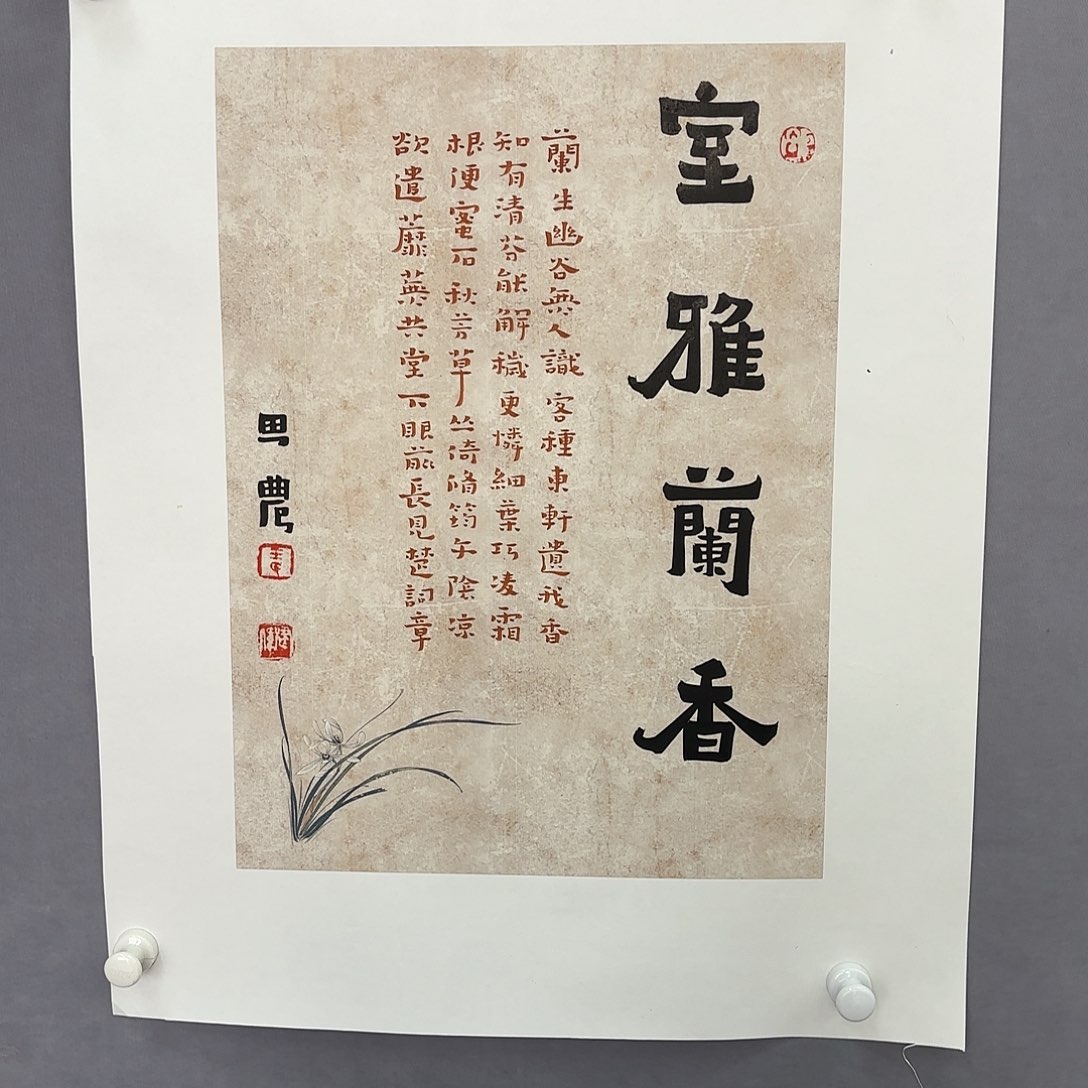 室雅蘭香
蘭生幽谷無人識客種東軒遺我香
知有清芬能解穢更憐細葉巧凌霜
根便蜜石秋芳草丛倚脩筠午陰凉
欲遣蘼蕪共堂下眼前長見楚詞章
農